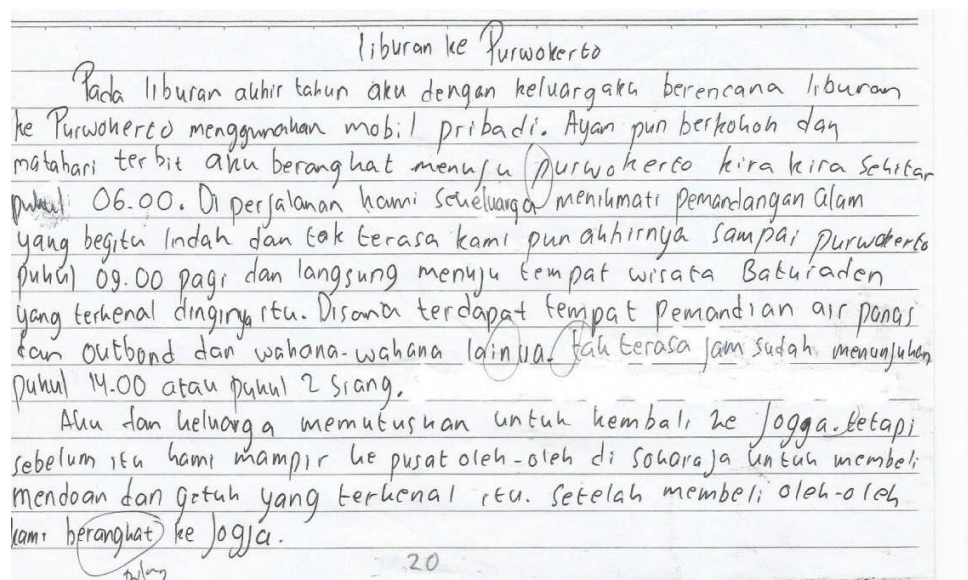 liburan ke Purwokerto
Pada liburan akhir tahun aku dengan keluargaku berencana liburan
ke Purwokerto menggunakan mobil pribadi. Ayan pun berkokok dan
matahari terbit aku berangkat menuju purwokerto kira kira sekitar
pukul 06.00. Di perjalanan kami sekeluarga menikmati pemandangan alam
yang begitu indah dan tak terasa kami pun akhirnya sampai purwokerto
pukul 09.00 pagi dan langsung menuju tempat wisata Baturaden
yang terkenal dinginya itu. Disana terdapat tempat pemandian air panas
dan outbond dan wahana-wahana lainua. tak terasa jam sudah menunjukan
pukul 14.00 atau pukul 2 siang.
Aku dan keluarga memutuskan untuk kembali ke Jogga. tetapi
sebelum itu kami mampir ke pusat oleh-oleh di sokaraja untuk membeli
mendoan dan getuk yang terkenal itu. setelah membeli oleh-oleh
kami berangkat ke Jogja.
pulang
20